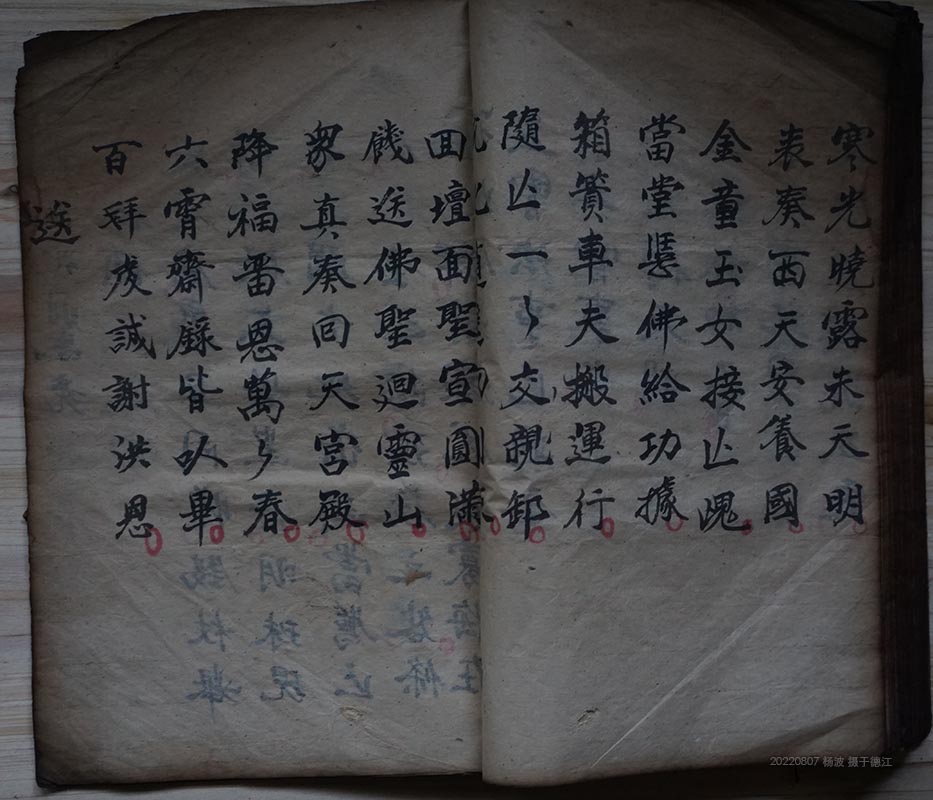 寒光曉露未天明
表奏西天安養國
金童玉女接亡魂
當堂懸佛給功據
箱篢車夫搬運行
隨亡一〻交親卸
回壇面聖宣圓滿
餞送佛聖迴靈山
衆真奏回天宮殿
降福畱恩萬〻春
六霄齋錄皆以畢
百拜虔誠謝洪恩
送
20220807 杨波 摄于德江